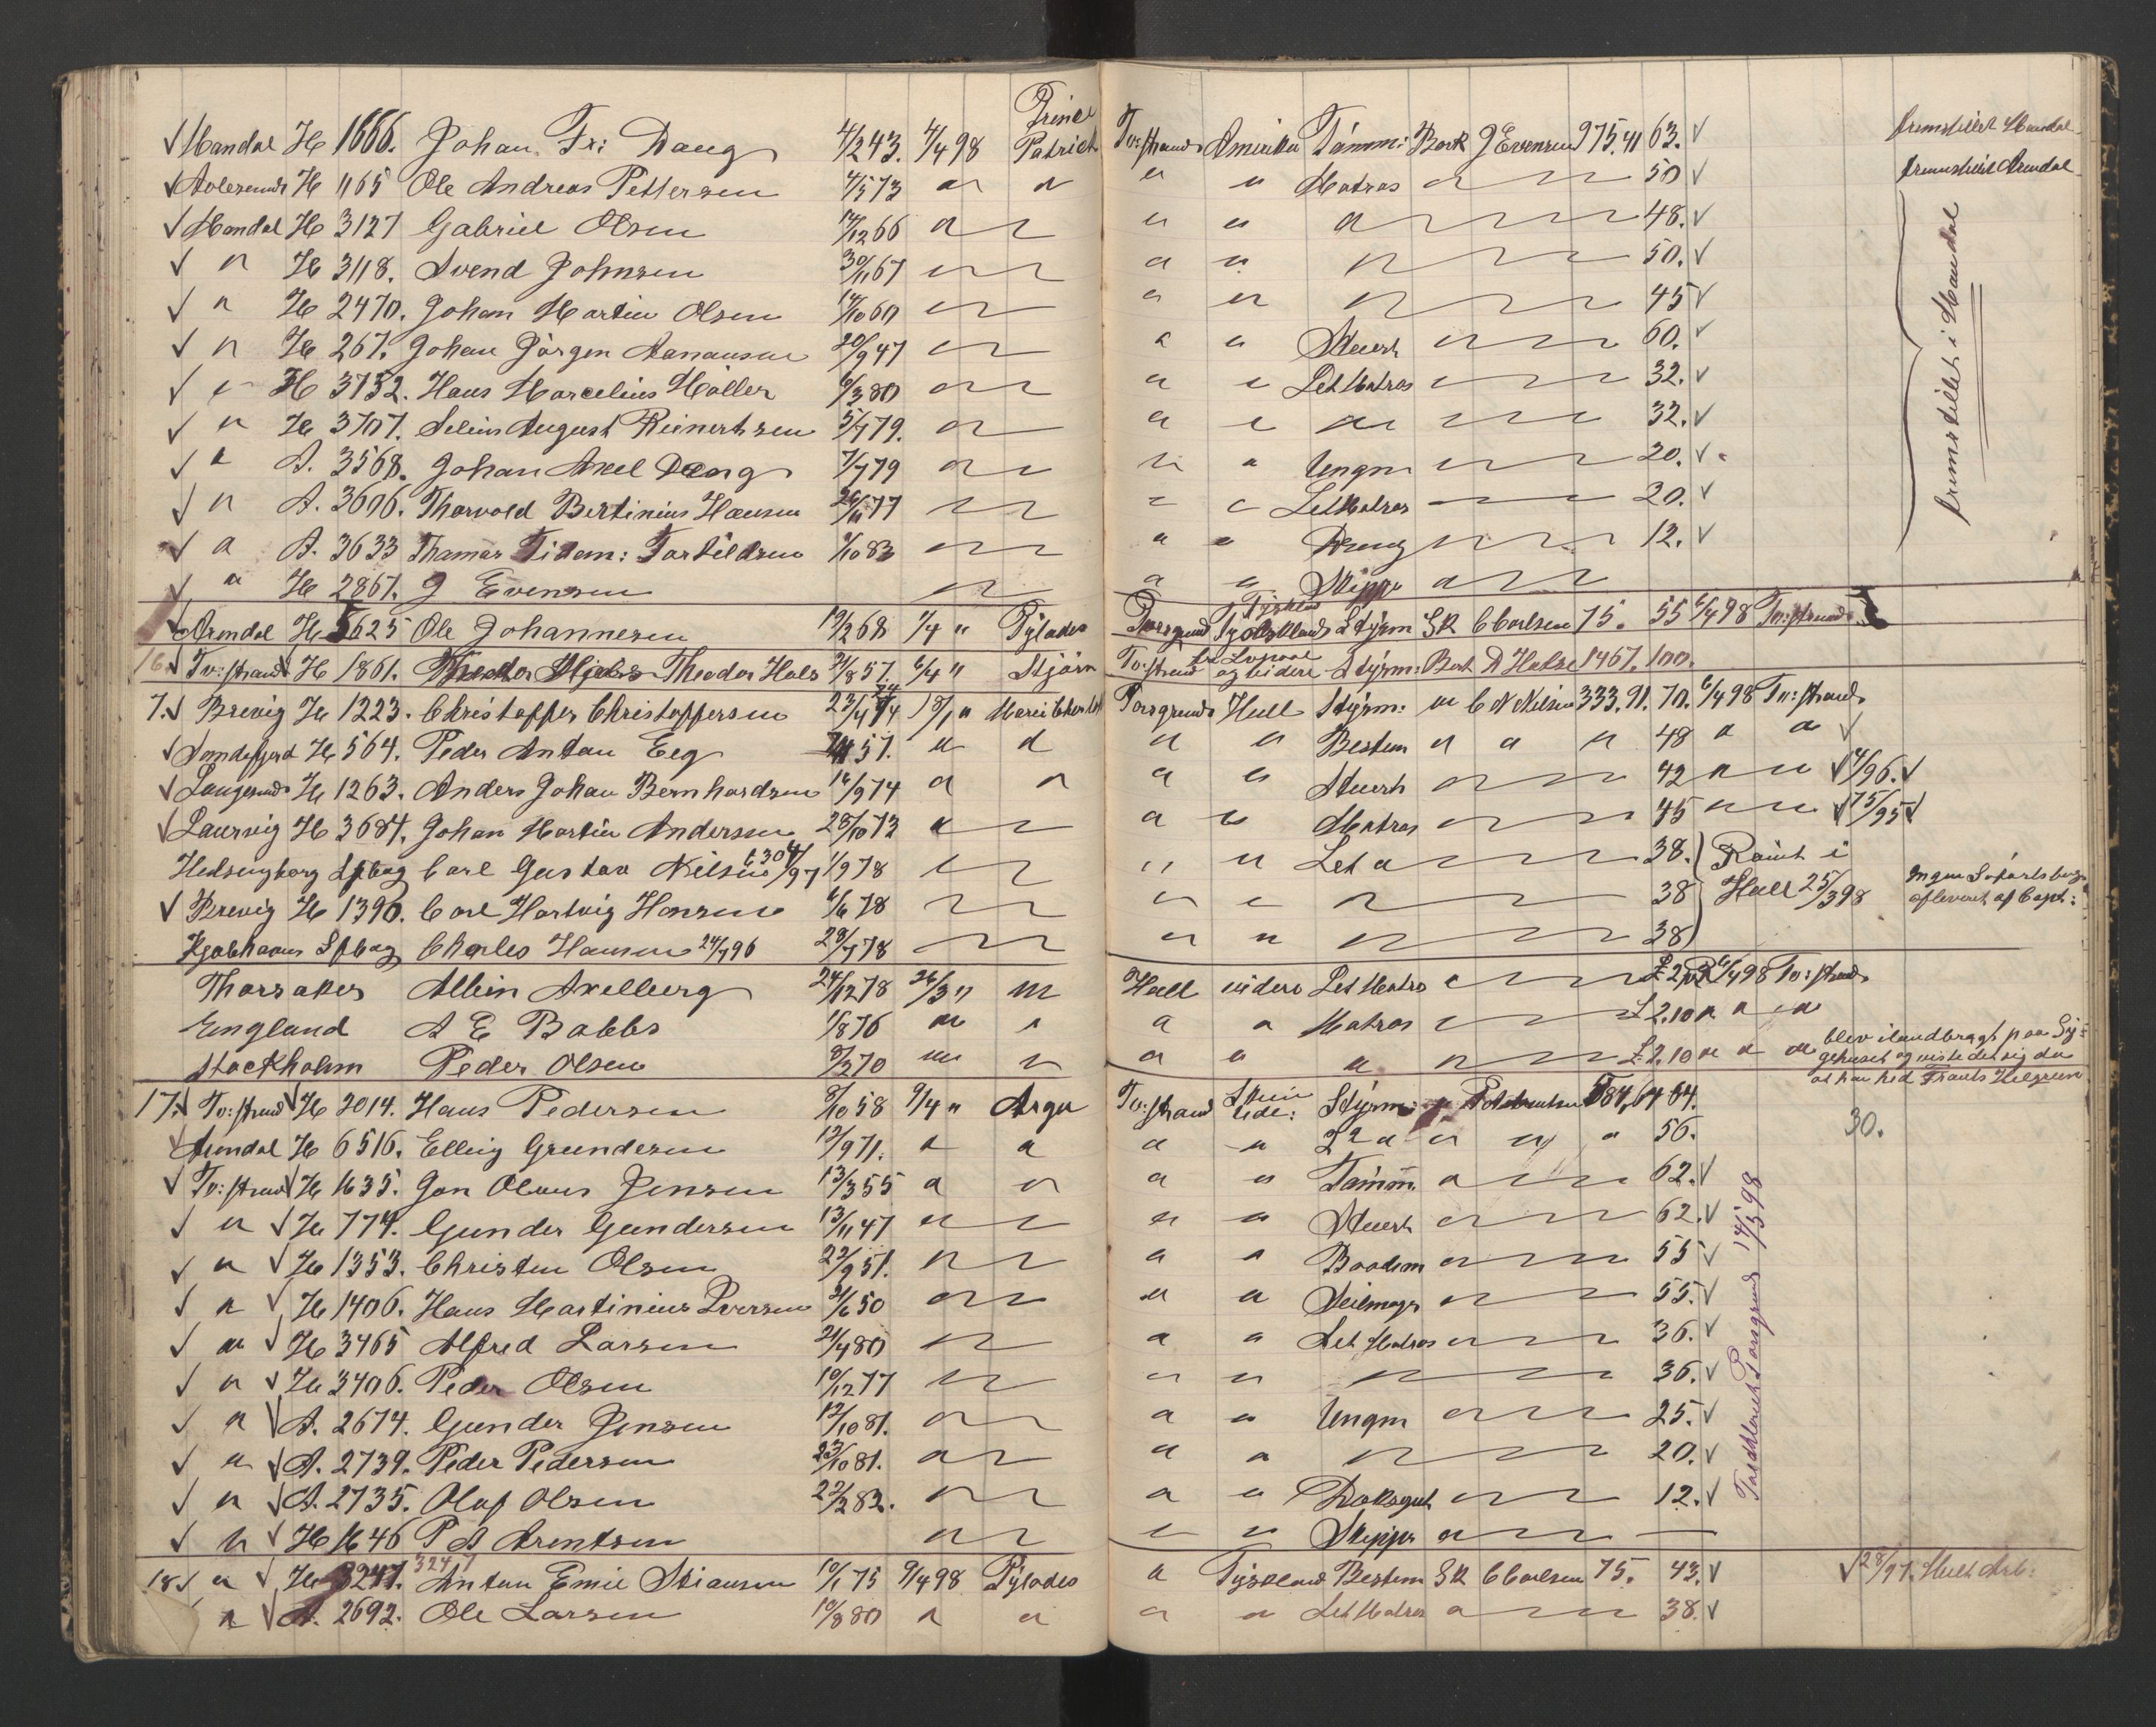 √ Mandal H 1666. Johan Fr: Daug 4/2 43. 4/4 98 Prince Patrick Tv:strand Amerika Tømm: Bark J Evensen 975.41 63. √ fremstillet Mandal
√ H 1165 Ole Andreas Pettersen 4/5 73 " " " " Matros " 50 √ fremstillet Arendal
√ Mandal H 3127 Gabriel Olsen 12/12 66 " " " " 48. √
√ " H 3118. Svend Johnsen 30/11 67 " " " " 50. √ fremstillet i Mandal
√ " H 2470. Johan Martin Olsen 14/10 60 " " " " 45 √
√ " H 267. Johan Jørgen Aanausen 20/9 47 " " " Stuert " 60. √
√ " H 3732. Hans Marcelius Møller 6/3 80 " " " Let Matros " 32. √
√ " H 3707. Selius August Reinertsen 5/7 79. " " " " 32. √
√ " A. 3568. Johan Axel Daug 7/7 79 " " " Ungm " 20. √
√ " A. 3606. Thorvald Bertinius Hansen 26/11 77 " " " Let Matros " 20. √
√ " A. 3633 Thomas Tidem: Tarkildsen /10 83 " " " Dreng " 12. √
√ " H 2867. J Evensen " " " Skipper "
√ Arendal H 5625 Ole Johannesen 19/2 68 1/4 " Pylades Porsgrund Tyskland Styrm SK C Carlsen 75. 55 6/4 98 Tv:strand
16. √ Tv:strand √ H 1861. Theodor Hals 31/8 57. 6/4 " Stjørn Tv:strand og videre Styrm: Bark D Halse 1467. 100.
7. √ Brevig H 1223. Christoffer Christoffersen 23/4 74 18/1 " Marei Porsgrund Hull Styrm: " C N Nilsen 333.91. 70. 6/4 98 Tv:strand
√ Sandefjord H 564. Peder Antau Eeg 57. " " " " Bestm " " " 48 " " √
√ Langesund H 1263. Anders Johan Bernhardsen 16/9 74 " " " " Stuert " 42 " " √ 4/96. √
√ Laurvig H 3684. Johan Martin Andersen 28/10 73 " " " Matros " 45 " " √ 15/95 √
Helsingborg Spbog Carl Gustav Nilsen 1/9 78 " " " Let " 38. Rømt i
√ Brevig H 1390. Carl Hartvig Hansen 6/6 78 " " " " 38 Hull 25/3 98 Ingen Søfartsbog afleveret af Capt:
Kjøbhavn Spbog Charles Hansen 24/7 96 28/7 78 " " " " 38
Thorsaker Albin Axelberg 24/12 78 26/3 " " Hull videre Let Matros " £ 2 6/4 98 Tv:strand
England A E Babbs 1/8 76 " " " " Matros " £ 2.10 " " "
Stockholm Peder Olsen 8/2 70 " " " " " " £ 2.10 " " " blev ilandbragt paa Sy-
gehuset og viste det sig da
at han hed Frants Helgren
17. √ Tv:strand √ H 2014. Hans Pedersen 8/10 58 9/4 " Argu Tv:strand Styrm: P A Arentsen 584,64 64.
√ Arendal H 6516. Elling Gundersen 12/9 71. " " " " 2 " " " " 56. 30.
√ Tv:strand √ H 1635. Jon Olaus Jensen 13/3 55 " " " " Tømm. " 62. √ Tv:strand Porsgrund 14/3 98
√ " √ H 774. Gunder Gundersen 13/11 47 " " " Stuert " 62. √
√ " √ H 1353. Christen Olsen 22/9 51. " " " Baadsm " 55 √
√ " √ H 1406. Hans Martinius Iversen 21/6 50 " " " Seilmager " 55. √
√ " √ H 3465 Alfred Larsen 21/4 80 " " " Let Matros " 36. √
√ " √ H 3406. Peder Olsen 10/12 77 " " " " 36. √
√ " √ A. 2674. Gunder Jensen 12/10 81. " " " Ungm " 25. √
√ " √ A. 2739. Peder Pedersen 23/10 81. " " " " 20. √
√ " √ A. 2735. Olaf Olsen 22/2 82. " " " Daksgut " 12. √
√ " √ H 1646 P A Arentsen " " " Skipper " —
18 √ " √ H 3247. 3247 Antau Emil Stiansen 10/1 75 9/4 98 Pylades " Tyskland Bestm SK C Carlsen 75. 43. √ √ 28/97.
" √ A. 2692. Ole Larsen 10/8 80 " " " " Let Matros " 38. √